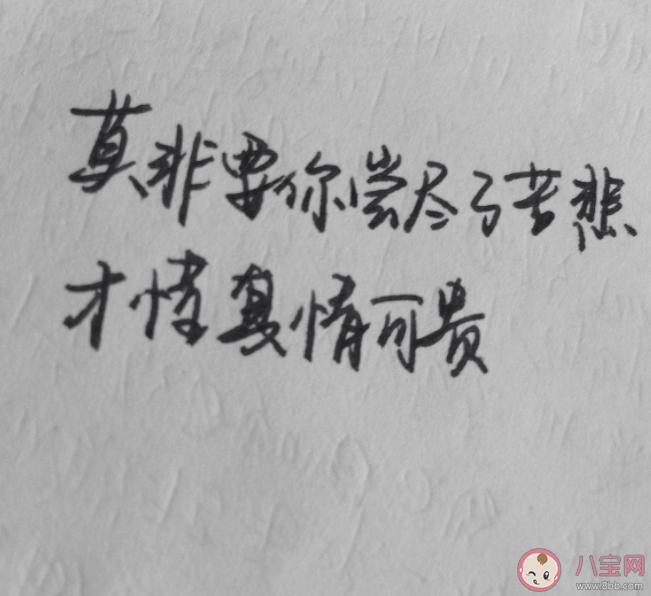 莫非要你尝尽了苦悲
才懂真情可贵
八宝网
www.8bb.com